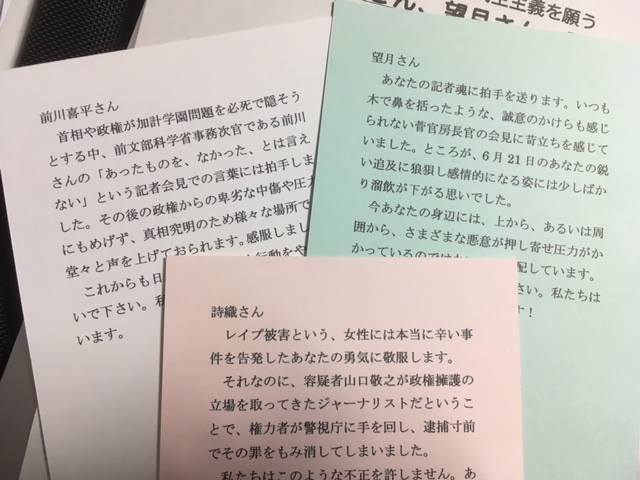 主義を願う
さん、望月さん
前川喜平さん
首相や政権が加計学園問題を必死で隠そう
とする中、前文部科学省事務次官である前川
さんの「あったものを、なかった、とは言え
ない」という記者会見での言葉には拍手しま
した。その後の政権からの卑劣な中傷や圧力
にもめげず、真相究明のため様々な場所で
堂々と声を上げておられます。感服しまし
これからも日
行動をや
いで下さい。私
います。
望月さん
あなたの記者魂に拍手を送ります。いつも
木で鼻を括ったような、誠意のかけらも感じ
られない菅官房長官の会見に苛立ちを感じて
いました。ところが、6月21日のあなたの鋭
い追及に狼狽し感情的になる姿には少しばか
り溜飲が下がる思いでした。
今あなたの身辺には、上から、あるいは周
囲から、さまざまな悪意が押し寄せ圧力がか
かっているのでは
配しています。
さい。私たちは
す！
詩織さん
レイプ被害という、女性には本当に辛い事
件を告発したあなたの勇気に敬服します。
それなのに、容疑者山口敬之が政権擁護の
立場を取ってきたジャーナリストだというこ
とで、権力者が警視庁に手を回し、逮捕寸前
でその罪をもみ消してしまいました。
私たちはこのような不正を許しません。あ